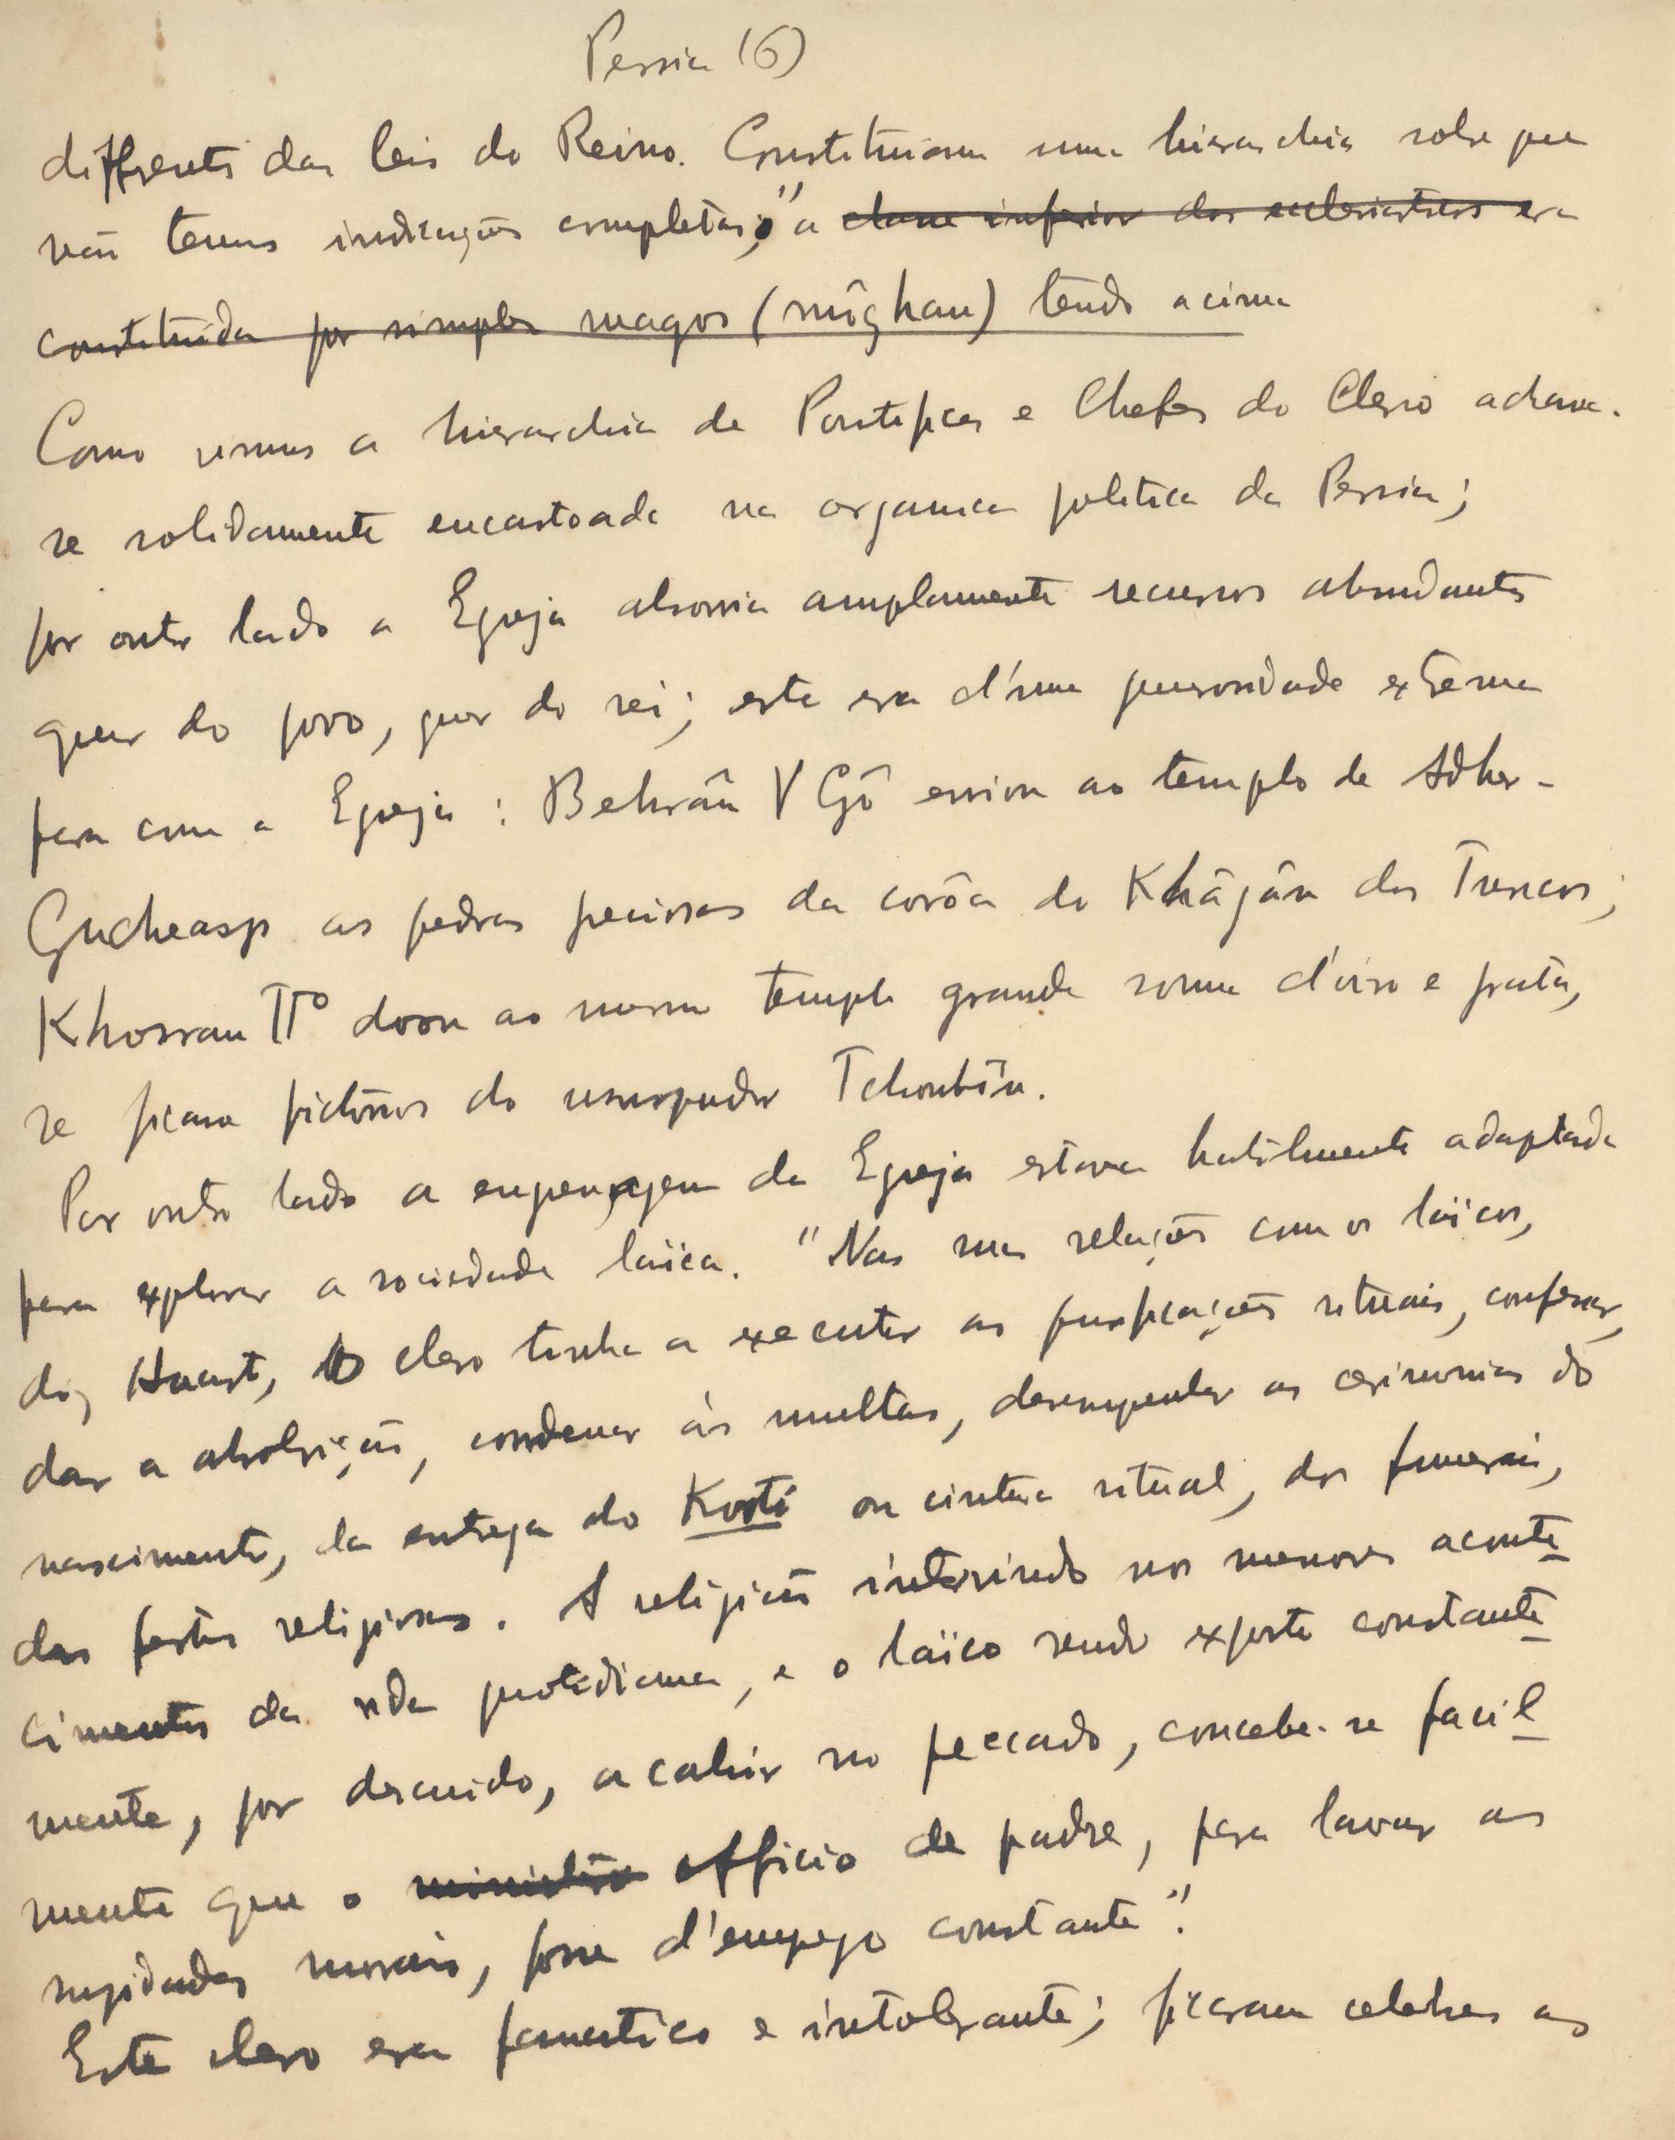 Persia (6)
differente das leis do Reino. Constituiam uma hierarchia sobre que
não temos indicações completas;" a classe inferior dos ecclesiasticos era
constituida por simples magos (môghan) tendo acima
Como vemos a hierarchia de Pontifices e Chefes do Clero achava-
se solidamente encastoada na organica politica da Persia;
por outro lado a Egreja absorvia amplamente recursos abundantes
quer do povo, quer do rei; este era d'uma generosidade extrema
para com a Egreja: Behrâm V Gô enviou ao templo de Adher-
Gucheasp as pedras preciosas da corôa do Khâgân dos Turcos;
Khosrau IIº doou ao mesmo templo grande somma d'ouro e prata,
se ficava victorioso do usurpador Tchoubîn.
Por outro lado a engrenagem da Egreja estava habilmente adaptada
para explorar a sociedade laïca. "Nas suas relações com os laïcos,
diz Huart, o clero tinha a executar as purificações rituais, confessar,
dar a absolvição, condemnar ás multas, desempenhar as cerimonias do
nascimento, da entrega do Kosti ou cintura ritual, dos funerais,
das festas religiosas. A religião intervindo nos menores aconte
cimentos da vida quotidiana, e o laïco sendo exposto constante
mente, por descuido, a cahir no peccado, concebe-se facil
mente que o ministerio officio de padre, para lavar as
sujidades morais, fosse d'emprego constante".
Este clero era fanatico e intolerante; ficaram celebres as